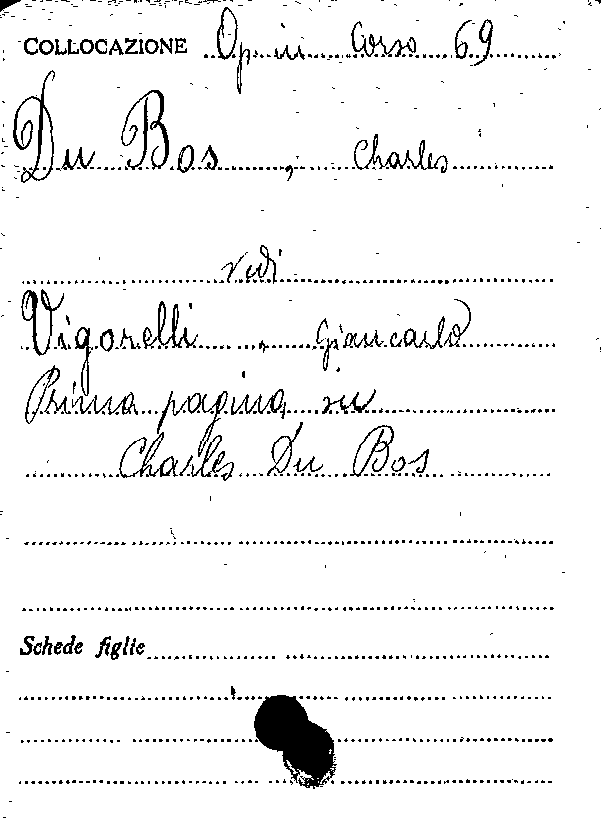 COLLOCAZIONE Op. in Corso 69
Du Bos, Charles
vedi
Vigorelli, Giancarlo
Prima pagina su
Charles Du Bos
Schede figlie